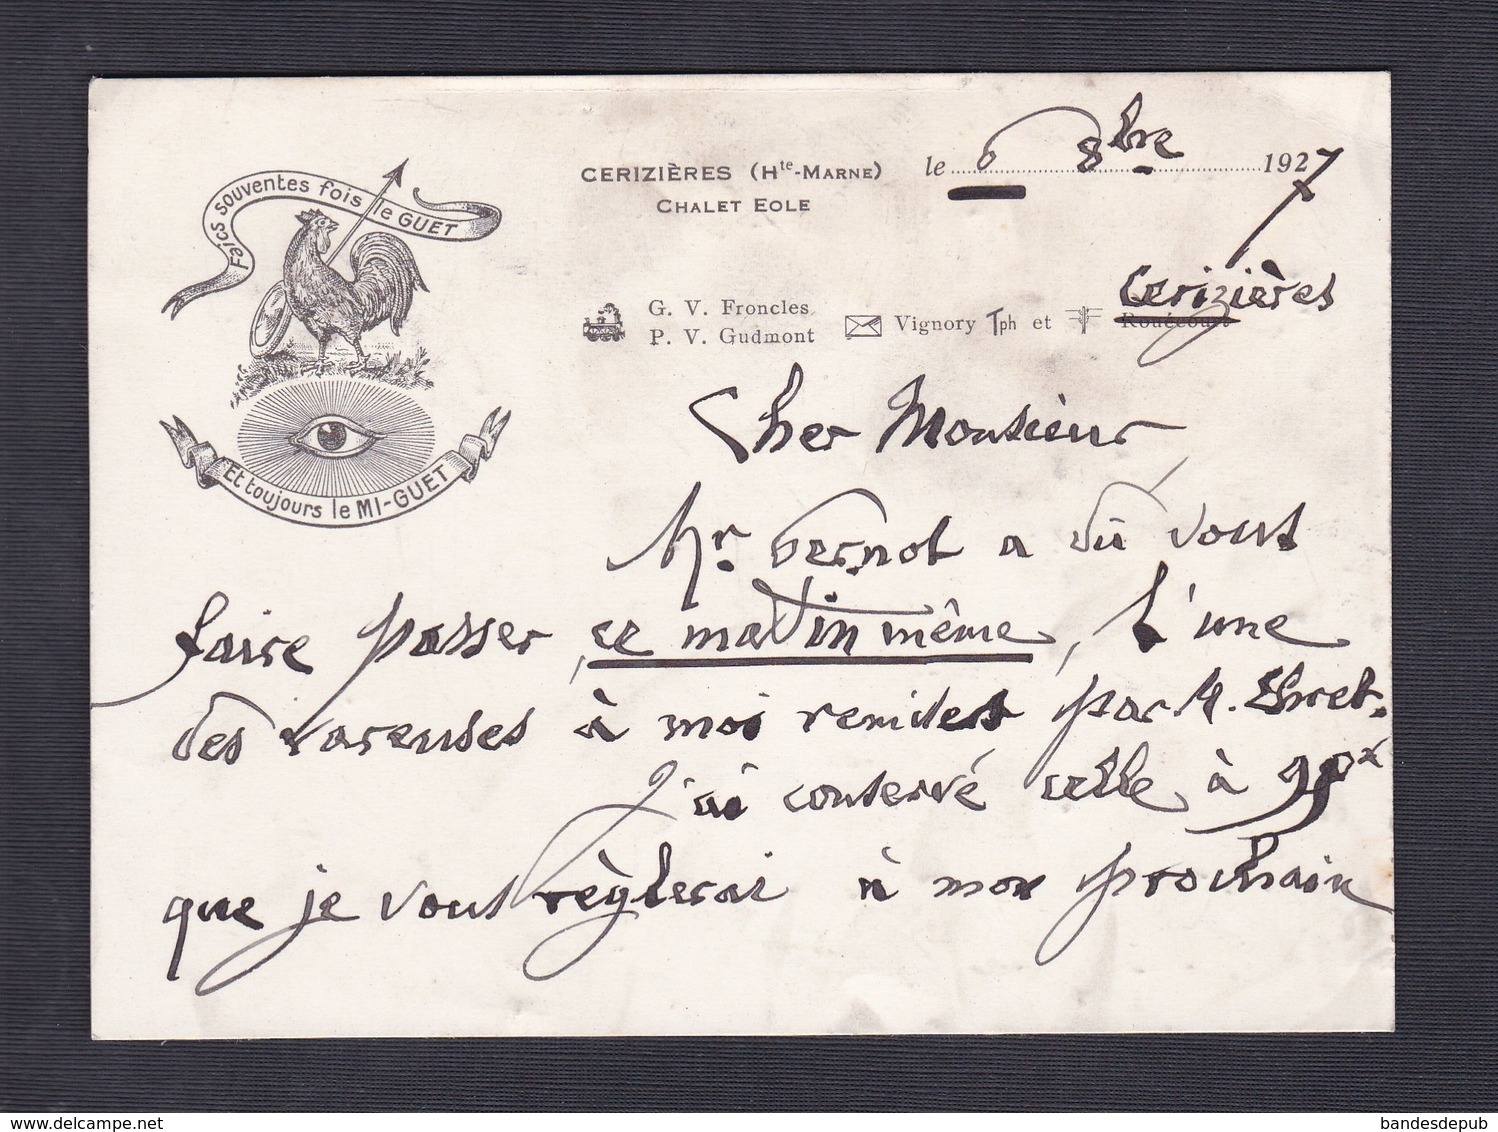 Feics souventes fois le GUET
Et toujours le MI-GUET
CERIZIÈRES (Hte-MARNE)
CHALET EOLE
le 6 8bre 1927
G. V. Froncles
P. V. Gudmont
Vignory Tph et Rouécourt
Cerizières
Cher Monsieur
Mr. Vernot a dû vous
faire passer, ce matin même, l'une
des vareuses à moi remises par M. Thret.
J'ai conservé celle à
que je vous règlerai à mon prochain
bandesdepub